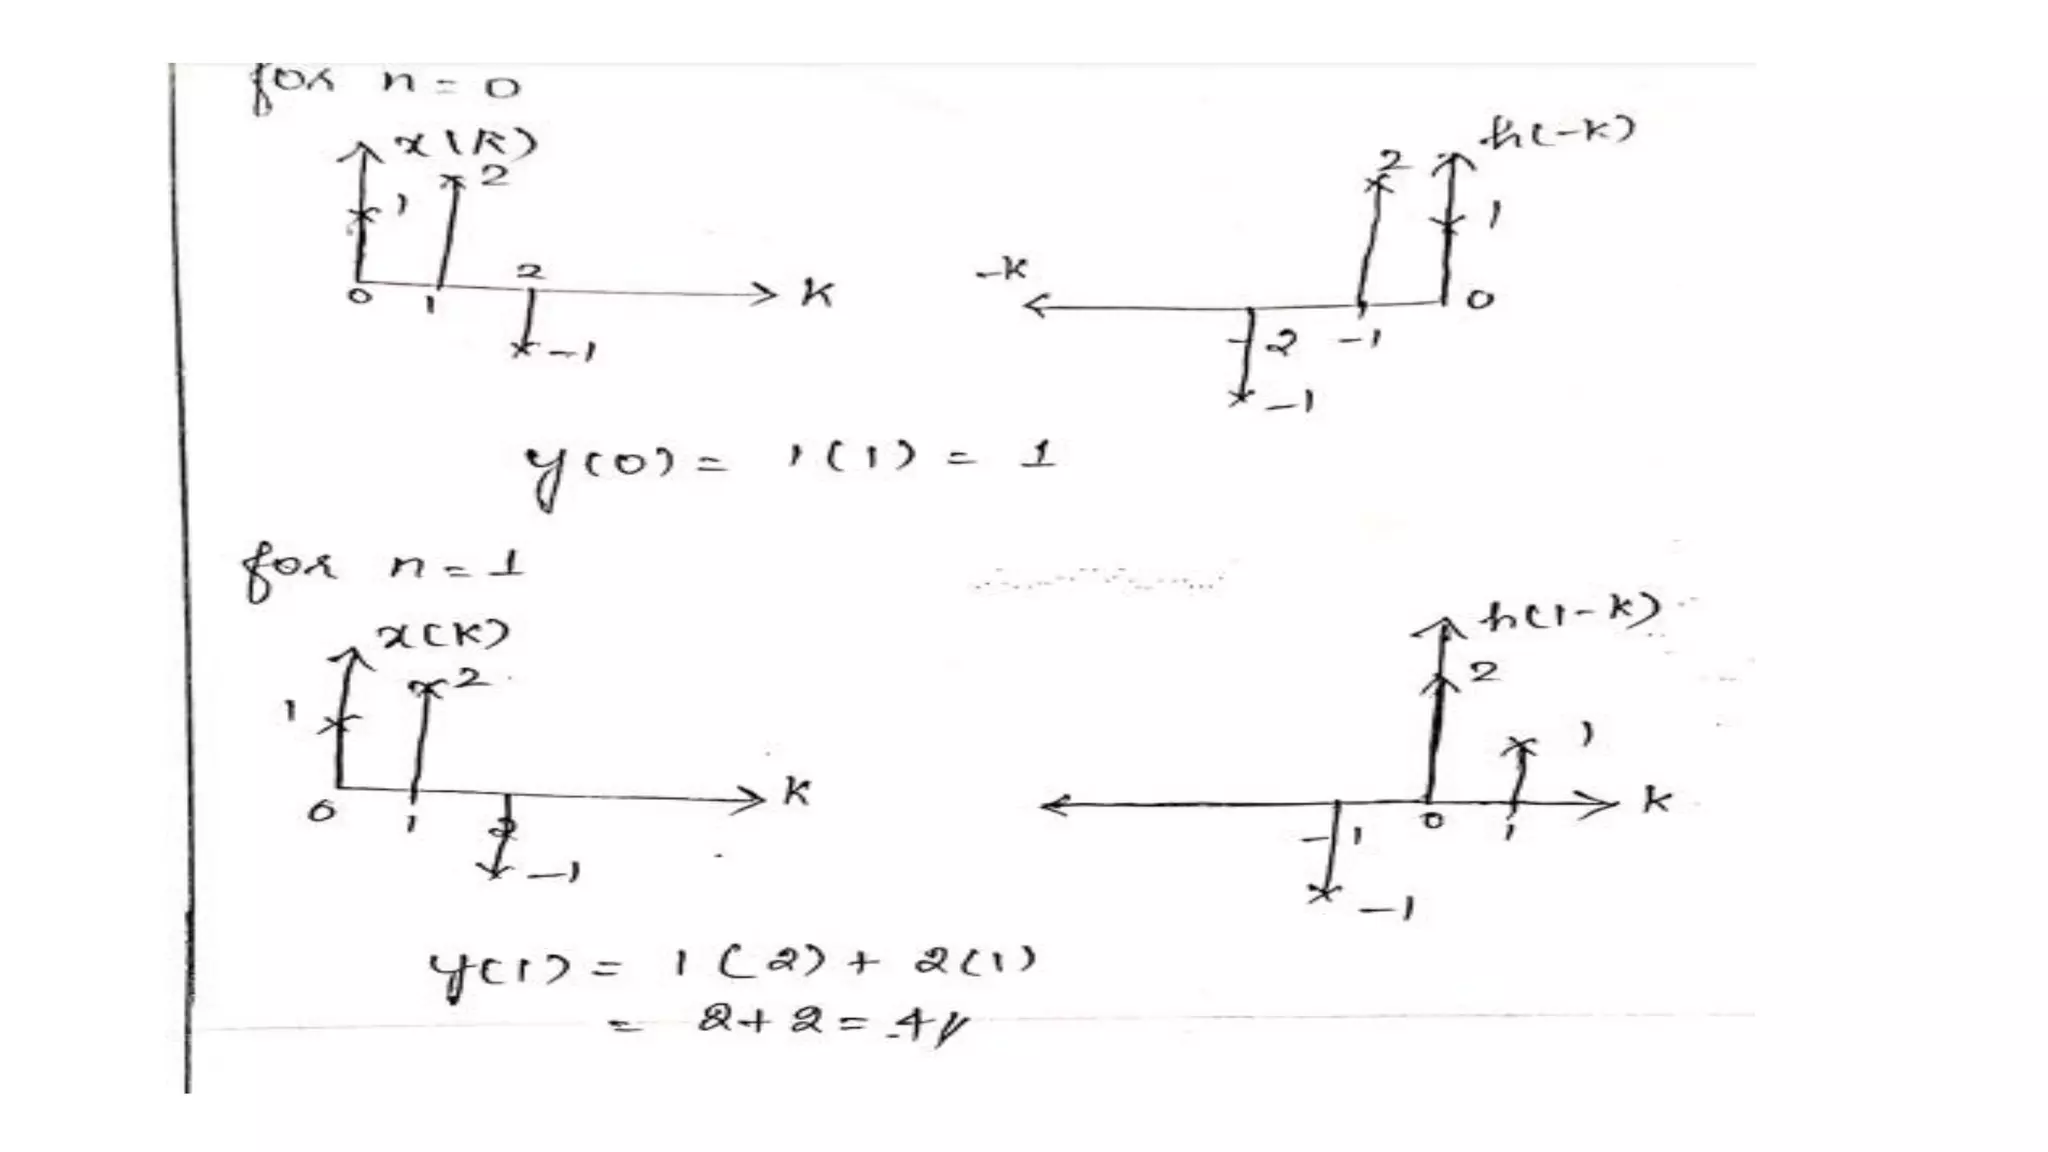 for n=0
x(k)
2
1
2
0
1
k
-1
h(-k)
2
1
-k
0
-2
-1
-1
y(0) = 1(1) = 1
for n=1
x(k)
2
1
k
0
1
2
-1
h(1-k)
2
1
k
-1
0
1
-1
y(1) = 1(2) + 2(1)
= 2+2 = 4//